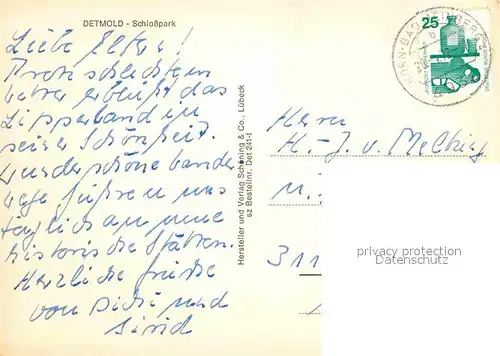 DETMOLD - Schloßpark
Liebe Eltern!
Trotz schlechtem
Wetter erblüht das
Lipperland in
seiner Schönheit.
Wunderschöne Wander
wege führen uns
täglich an neue
historische Stätten.
Herzliche Grüße
von Dichi und
Hersteller und Verlag Schöning & Co., Lübeck
sz Bestellnr. Det 241-f
25
HORN-BAD MEINBERG
Herrn
H.-J. v. Melking
311
privacy protection
Datenschutz